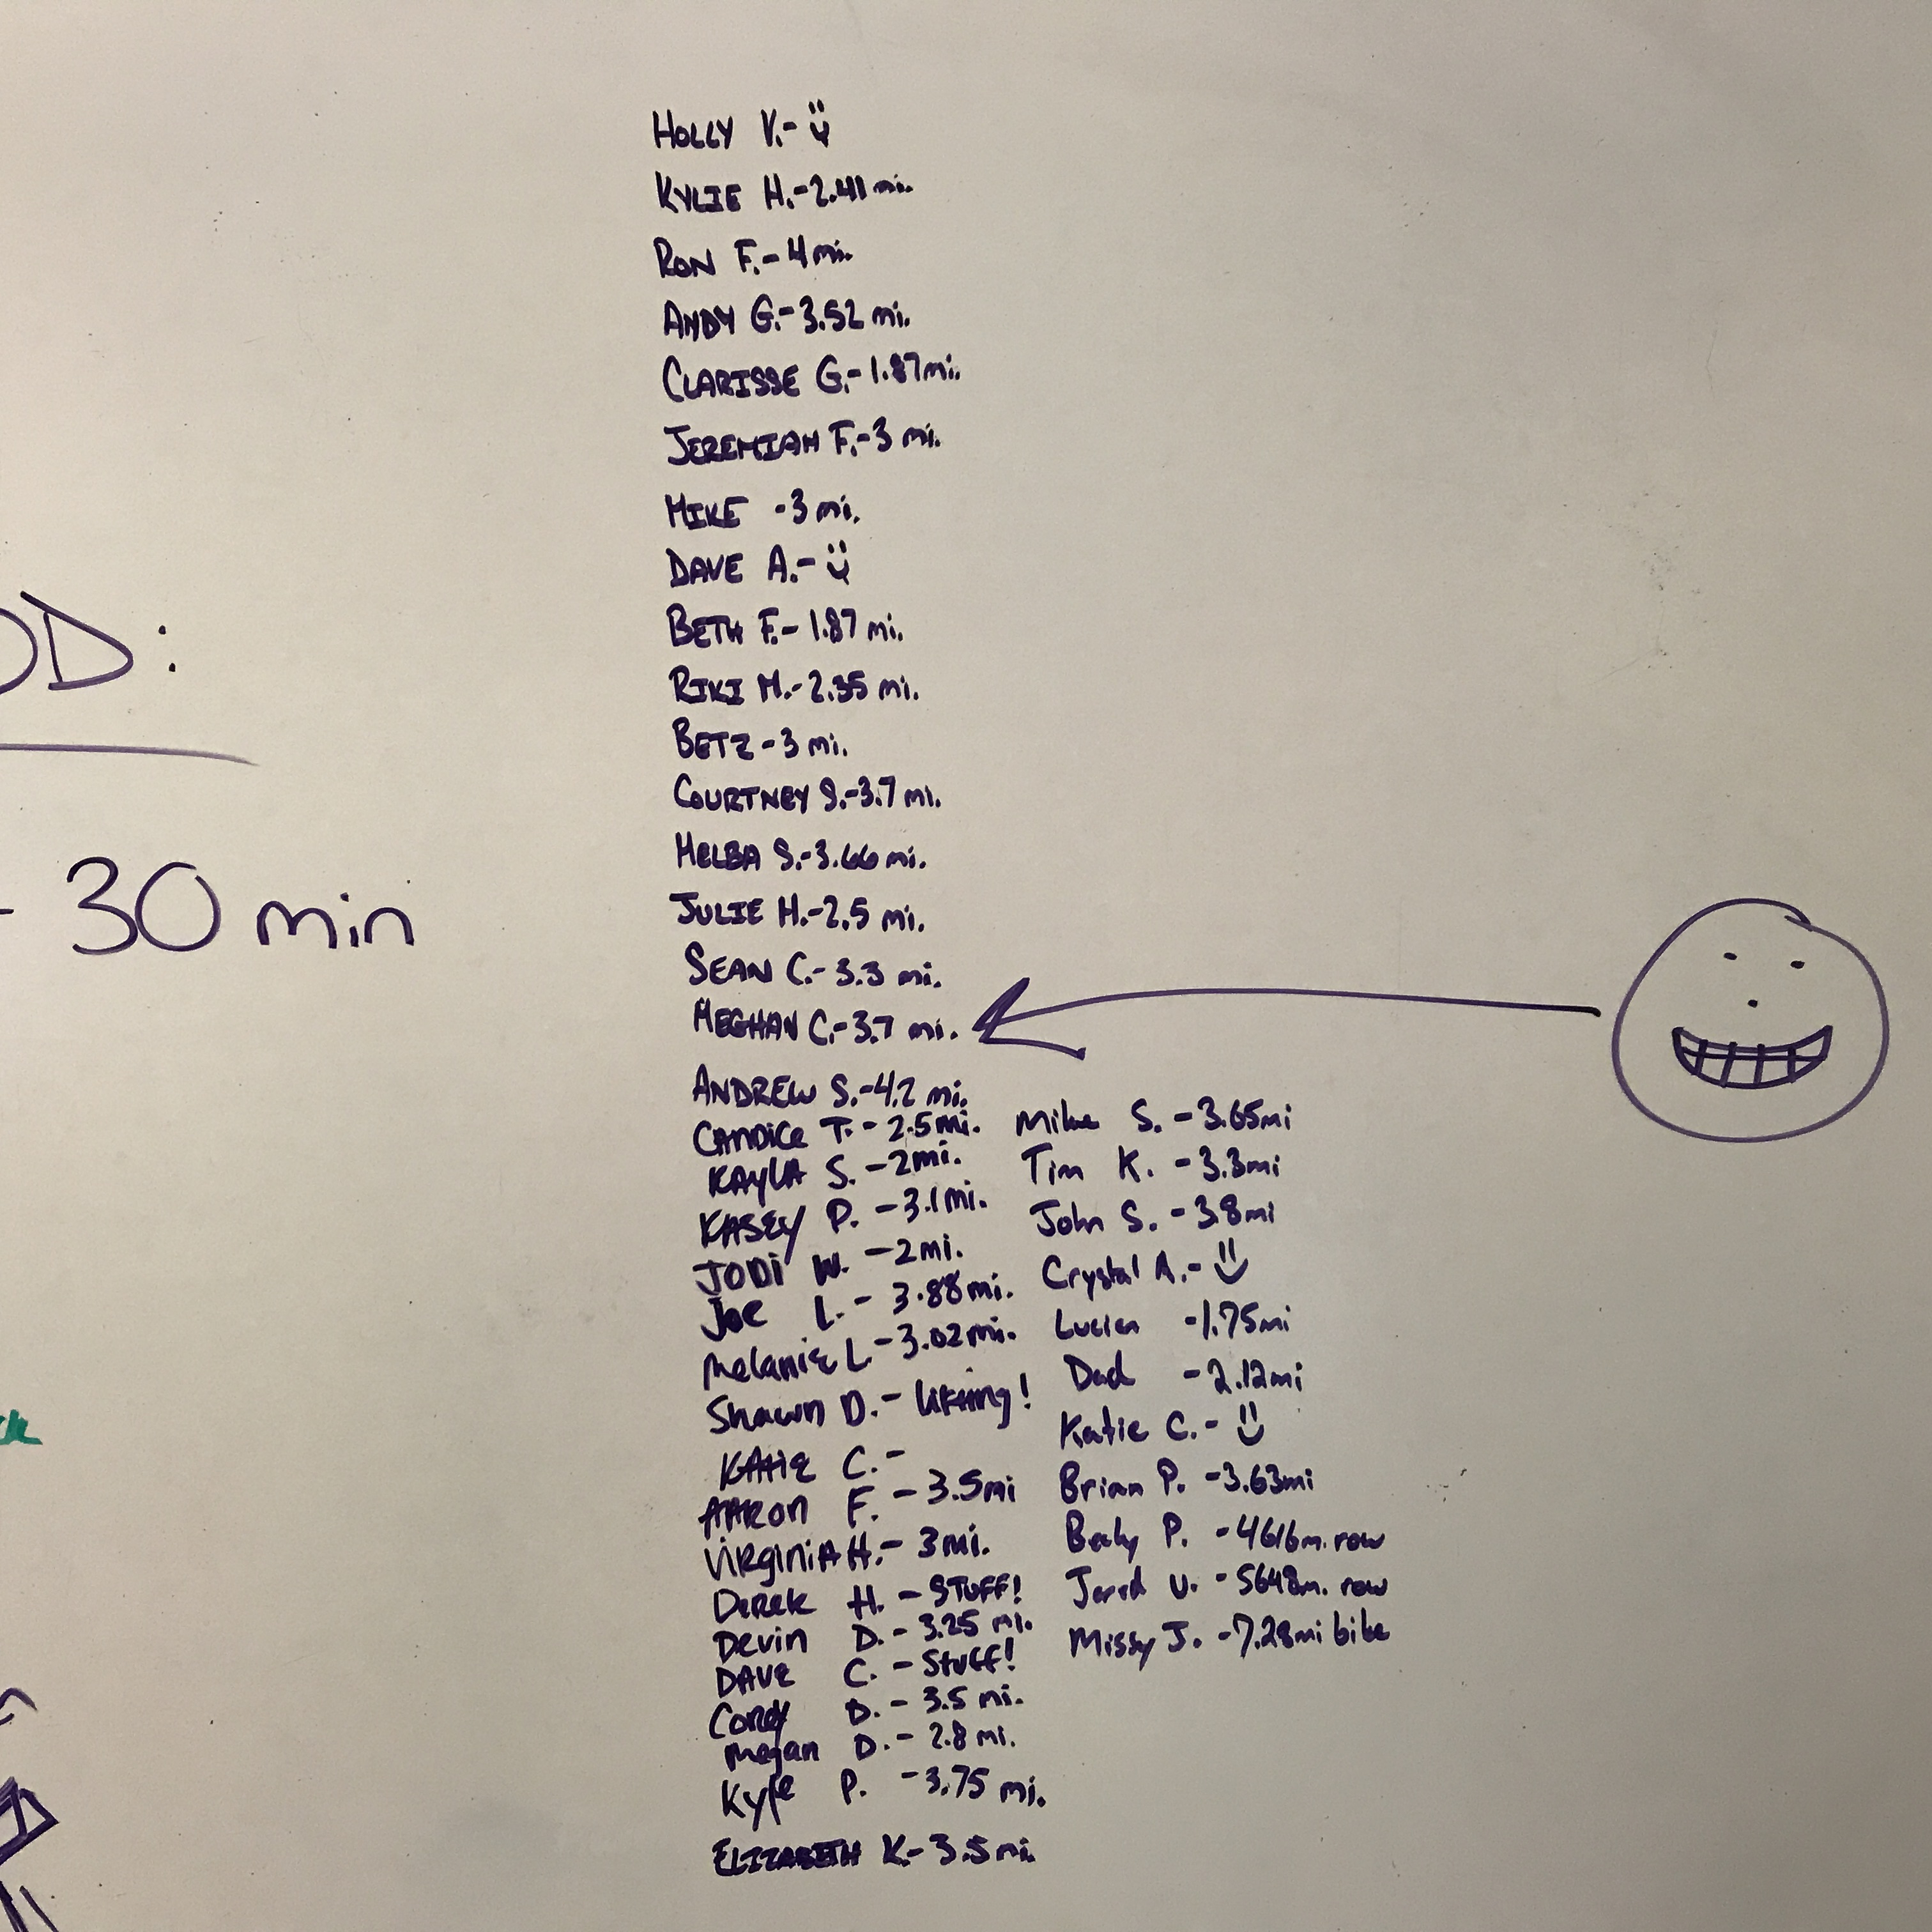 OD:
- 30 min
HOLLY V.- Ü
KYLIE H.-2.41 mi.
RON F.- 4 mi.
ANDY G.-3.52 mi.
CLARISSE G.-1.87mi.
JEREMIAH F.-3 mi.
MIKE -3 mi.
DAVE A.- Ü
BETH F.- 1.87 mi.
RIKI M.-2.35 mi.
BETZ-3 mi.
COURTNEY S.-3.7 mi.
MELBA S.-3.66 mi.
JULIE H.-2.5 mi.
SEAN C.- 3.3 mi.
MEGHAN C.-3.7 mi.
ANDREW S.-4.2 mi.
CANDICE T. - 2.5mi.
KAYLA S. -2mi.
KASEY P. -3.1mi.
JODI W. -2mi.
Joe L. - 3.88mi.
Melanie L -3.02mi.
Shawn D.- lifting!
KAtie C.-
AARON F. - 3.5mi
VIRginiA H.- 3mi.
Derek H. -STUFF!
Devin D.- 3.25 mi.
DAVE C. - Stuff!
Corey D. - 3.5 mi.
Megan D.- 2.8 mi.
Kyle P. -3.75 mi.
ELIZABETH K.- 3.5mi.
Mike S. -3.65mi
Tim K. -3.3mi
John S. -3.8mi
Crystal A.- Ü
Lucien -1.75mi
Dad -2.12mi
Katie C.- Ü
Brian P. -3.63mi
P. -4616m. row
Jarrd V. -5648m. row
Missy J. -7.28mi bike